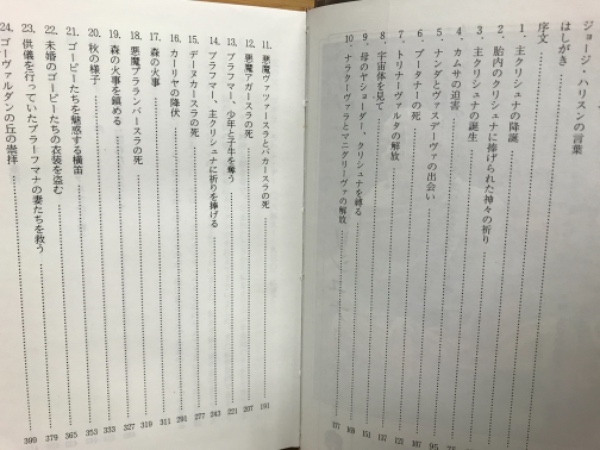 ジョージ・ハリスンの言葉
はしがき
序文
1、主クリシュナの降誕
2、胎内のクリシュナに捧げられた神々の祈り
3、主クリシュナの誕生
4、カムサの迫害 95
5、ナンダとヴァスデーヴァの出会い 107
6、プータナーの死 121
7、トリナーヴァルタの解放
8、宇宙体を見て 151
9、母のヤショーダー、クリシュナを縛る
10、ナラクーヴァラとマニグリーヴァの解放 177
11、悪魔ヴァツァースラとバカースラの死 193
12、悪魔アガースラの死 207
13、ブラフマー、少年と子牛を奪う 221
14、ブラフマー、主クリシュナに祈りを捧げる 243
15、デーヌカースラの死 277
16、カーリヤの降伏 291
17、森の火事 311
18、悪魔プラランバースラの死 319
19、森の火事を鎮める 327
20、秋の様子 333
21、ゴーピーたちを魅惑する横笛 353
22、未婚のゴーピーたちの衣装を盗む 365
23、供儀を行っていたブラーフマナの妻たちを救う 379
24、ゴーヴァルダンの丘の崇拝 399